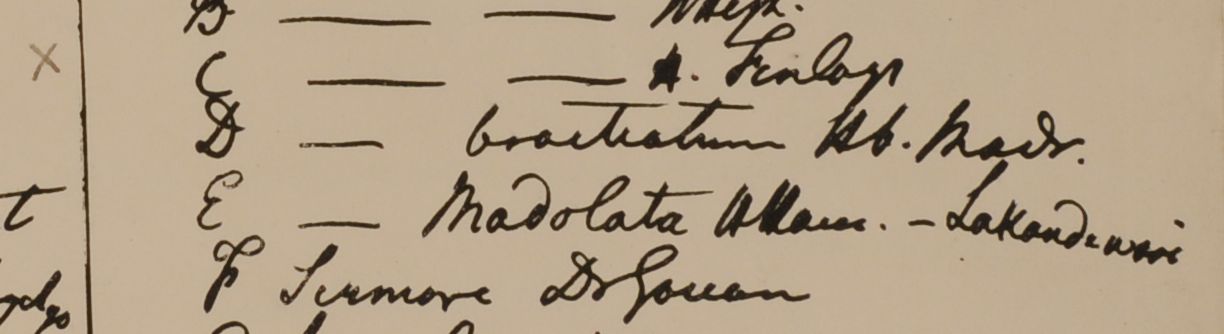 B — — Wight.
C — — H. Finlays
D — bracteatum Hb. Madr.
E — Madolata HHam. - Lakandiwari
F Sirmore Dr Govan